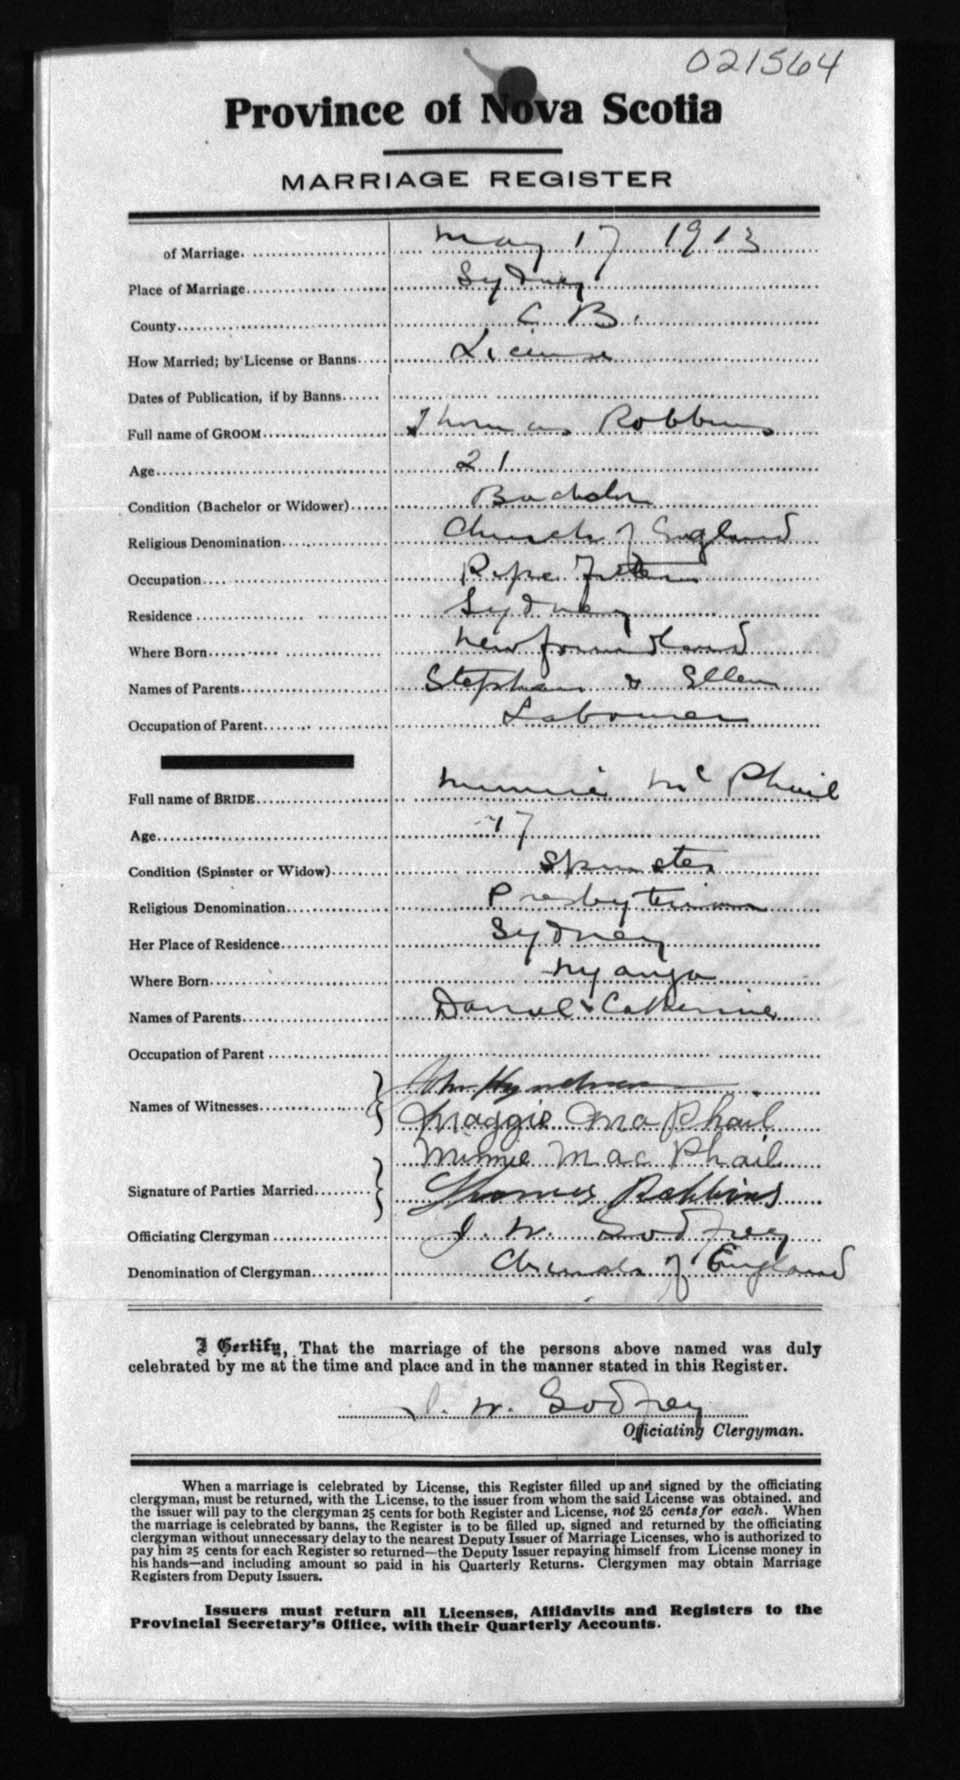 021564
Province of Nova Scotia
MARRIAGE REGISTER
of Marriage May 17 1913
Place of Marriage Sydney
County C B.
How Married; by License or Banns License
Dates of Publication, if by Banns
Full name of GROOM Thomas Robbins
Age 21
Condition (Bachelor or Widower) Bachelor
Religious Denomination Church of England
Occupation Pipe Fitter
Residence Sydney
Where Born Newfoundland
Names of Parents Stephen & Ellen
Occupation of Parent Labourer
Full name of BRIDE Minnie McPhail
Age 17
Condition (Spinster or Widow) Spinster
Religious Denomination Presbyterian
Her Place of Residence Sydney
Where Born Nyanza
Names of Parents Daniel & Catherine
Occupation of Parent
John
Names of Witnesses Maggie MaPhail
Minnie MacPhail
Signature of Parties Married Thomas Robbins
Officiating Clergyman J. W. Godfrey
Denomination of Clergyman Church of England
I Certify, That the marriage of the persons above named was duly
celebrated by me at the time and place and in the manner stated in this Register.
J. W. Godfrey
Officiating Clergyman.
When a marriage is celebrated by License, this Register filled up and signed by the officiating
clergyman, must be returned, with the License, to the issuer from whom the said License was obtained, and
the issuer will pay to the clergyman 25 cents for both Register and License, not 25 cents for each. When
the marriage is celebrated by banns, the Register is to be filled up, signed and returned by the officiating
clergyman without unnecessary delay to the nearest Deputy Issuer of Marriage Licenses, who is authorized to
pay him 25 cents for each Register so returned—the Deputy Issuer repaying himself from License money in
his hands—and including amount so paid in his Quarterly Returns. Clergymen may obtain Marriage
Registers from Deputy Issuers.
Issuers must return all Licenses, Affidavits and Registers to the
Provincial Secretary's Office, with their Quarterly Accounts.